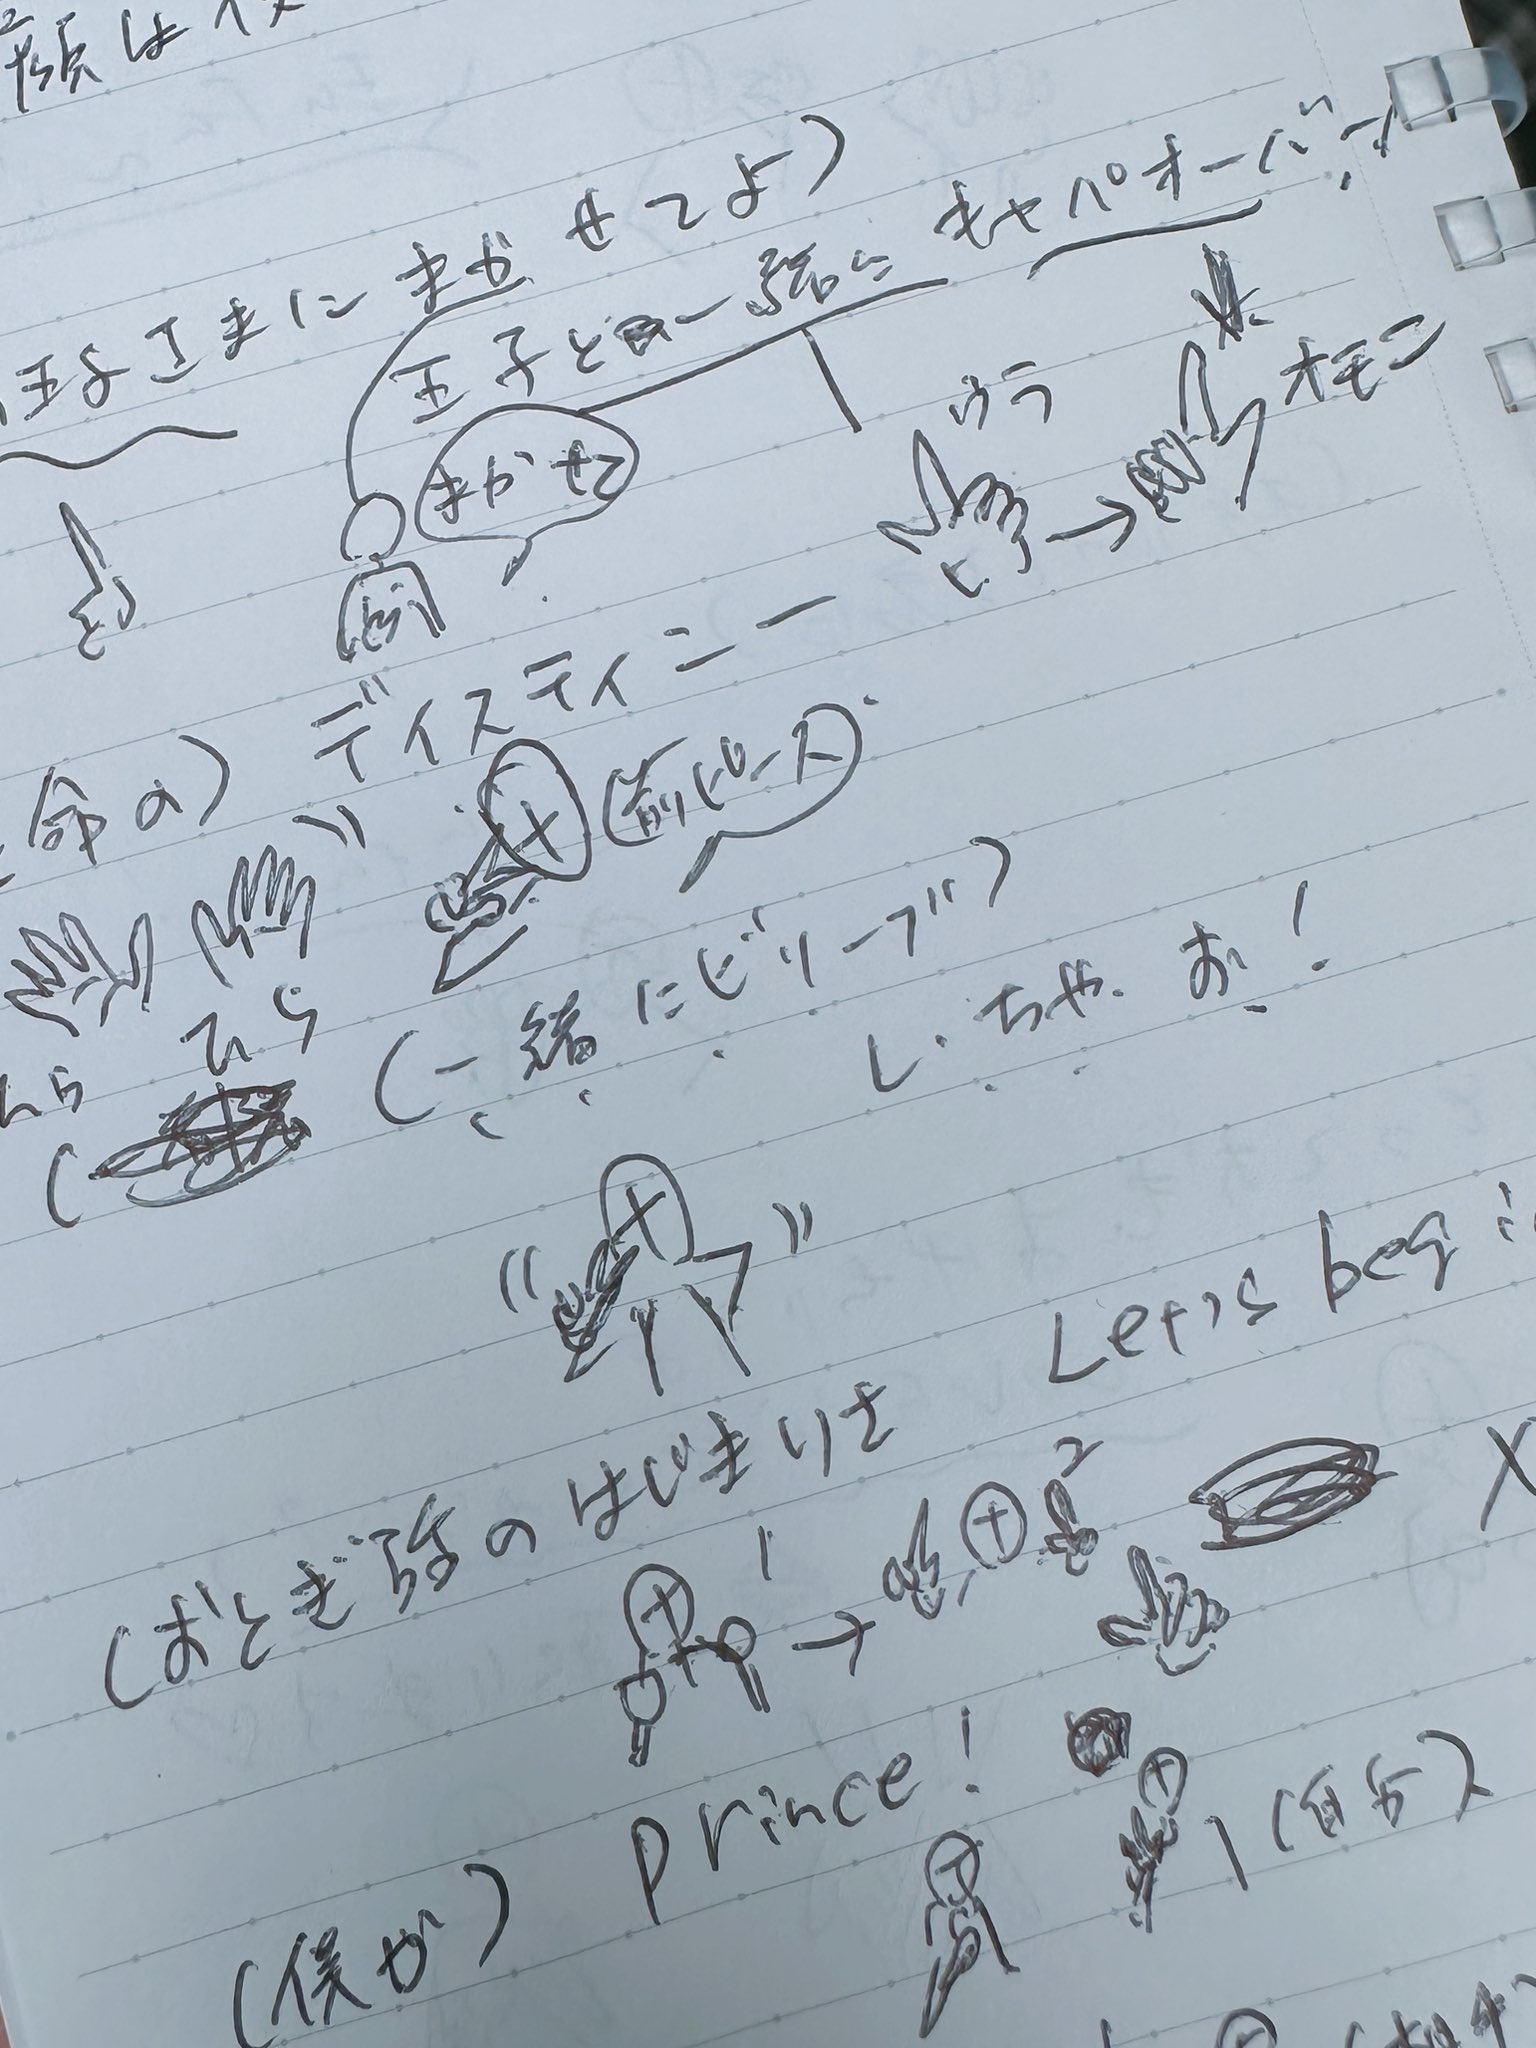 顔は
王子さまにまかせてよ)
王子と一緒に キャパオーバー
まかせて
ウラ
オモテ
命の) ディスティニー
前ピース
ひら
(一緒にビリーブ)
しちゃお!
Let's begin
(おとぎ話のはじまりさ
1
2
(僕が) prince!
1 (自分)